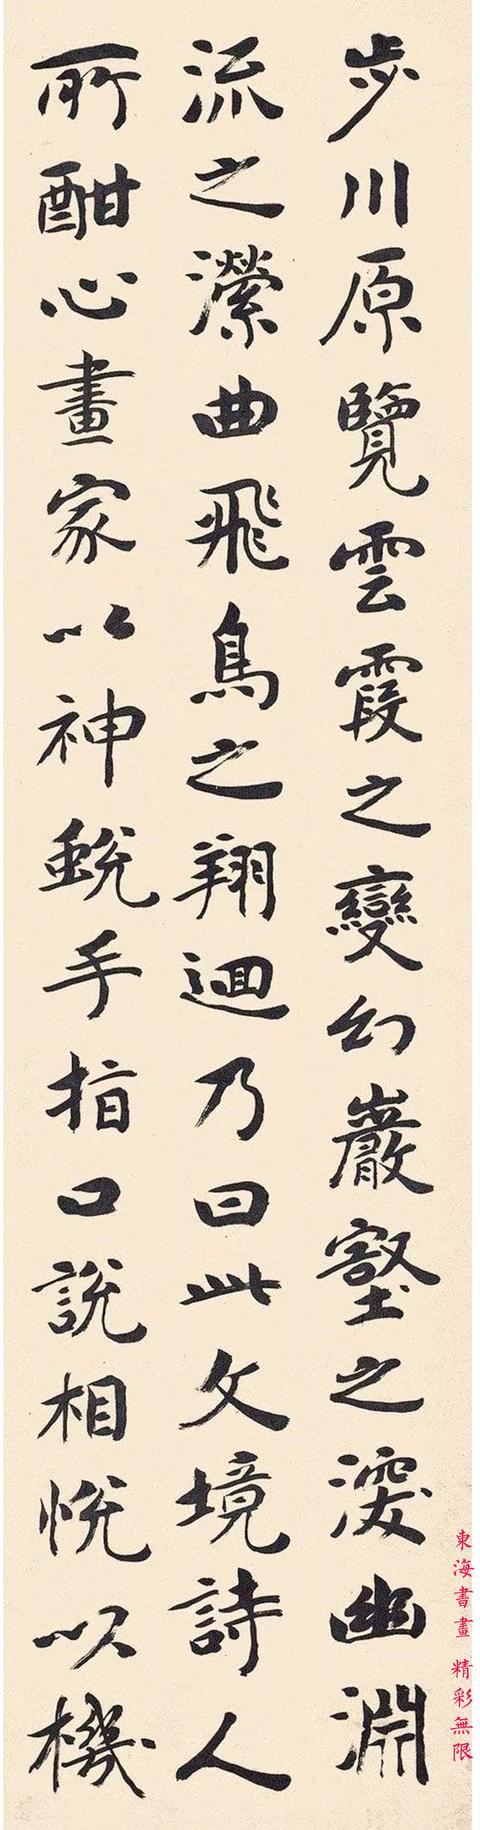 步川原覽雲霞之變幻巖壑之深幽淵
流之瀠曲飛鳥之翔迴乃曰此文境詩人
所酣心畫家以神銳手指口說相悅以機
東海書畫 精彩無限